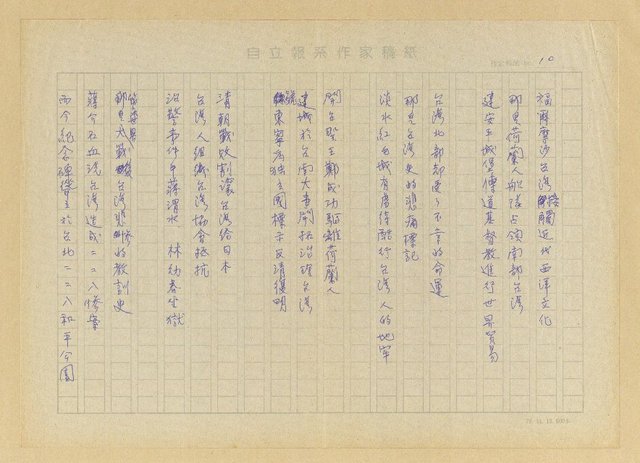 自立報系作家稿紙
10
福爾摩沙台灣接觸近代西洋文化
那是荷蘭人船隊占領南部台灣
建安平城堡傳道基督教進行世界貿易
台灣北部却遭了不幸的命運
那是台灣史的悲痛標記
淡水紅毛城有虐待酷行台灣人的地牢
開台聖王鄭成功驅離荷蘭人
建城於台南大書開拓治理台灣
號東寧為獨立國標示反清復明
清朝戰敗割讓台灣給日本
台灣人組織台灣協會抵抗
治警事件中蔣渭水 林幼春坐獄
那是大戰後台灣悲慘的教訓史
蔣介石血洗台灣造成二二八慘案
而今紀念碑聳立於台北二二八和平公園